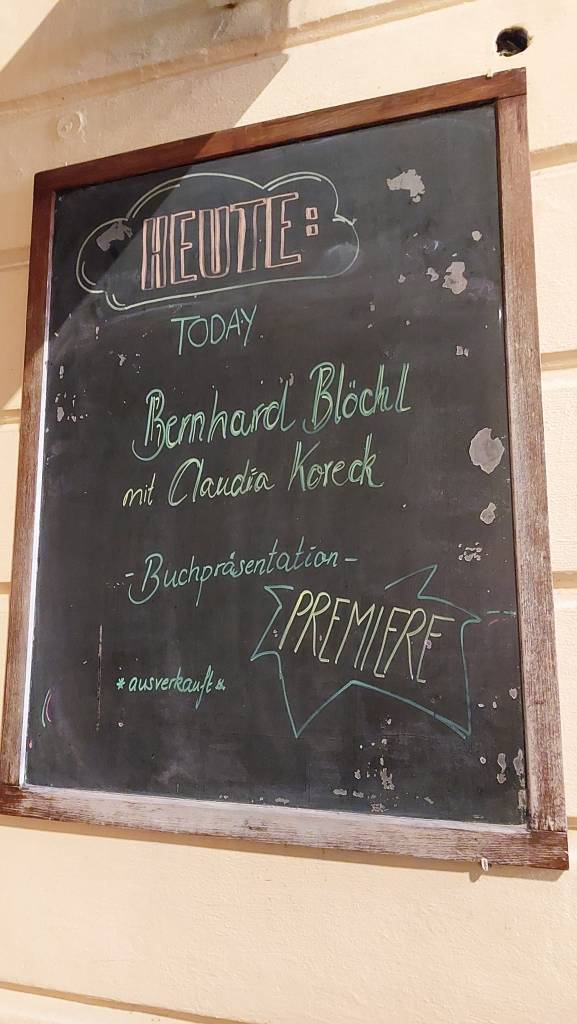 HEUTE:
TODAY
Bernhard Blöchl
mit Claudia Koreck
-Buchpräsentation-
PREMIERE
*ausverkauft*